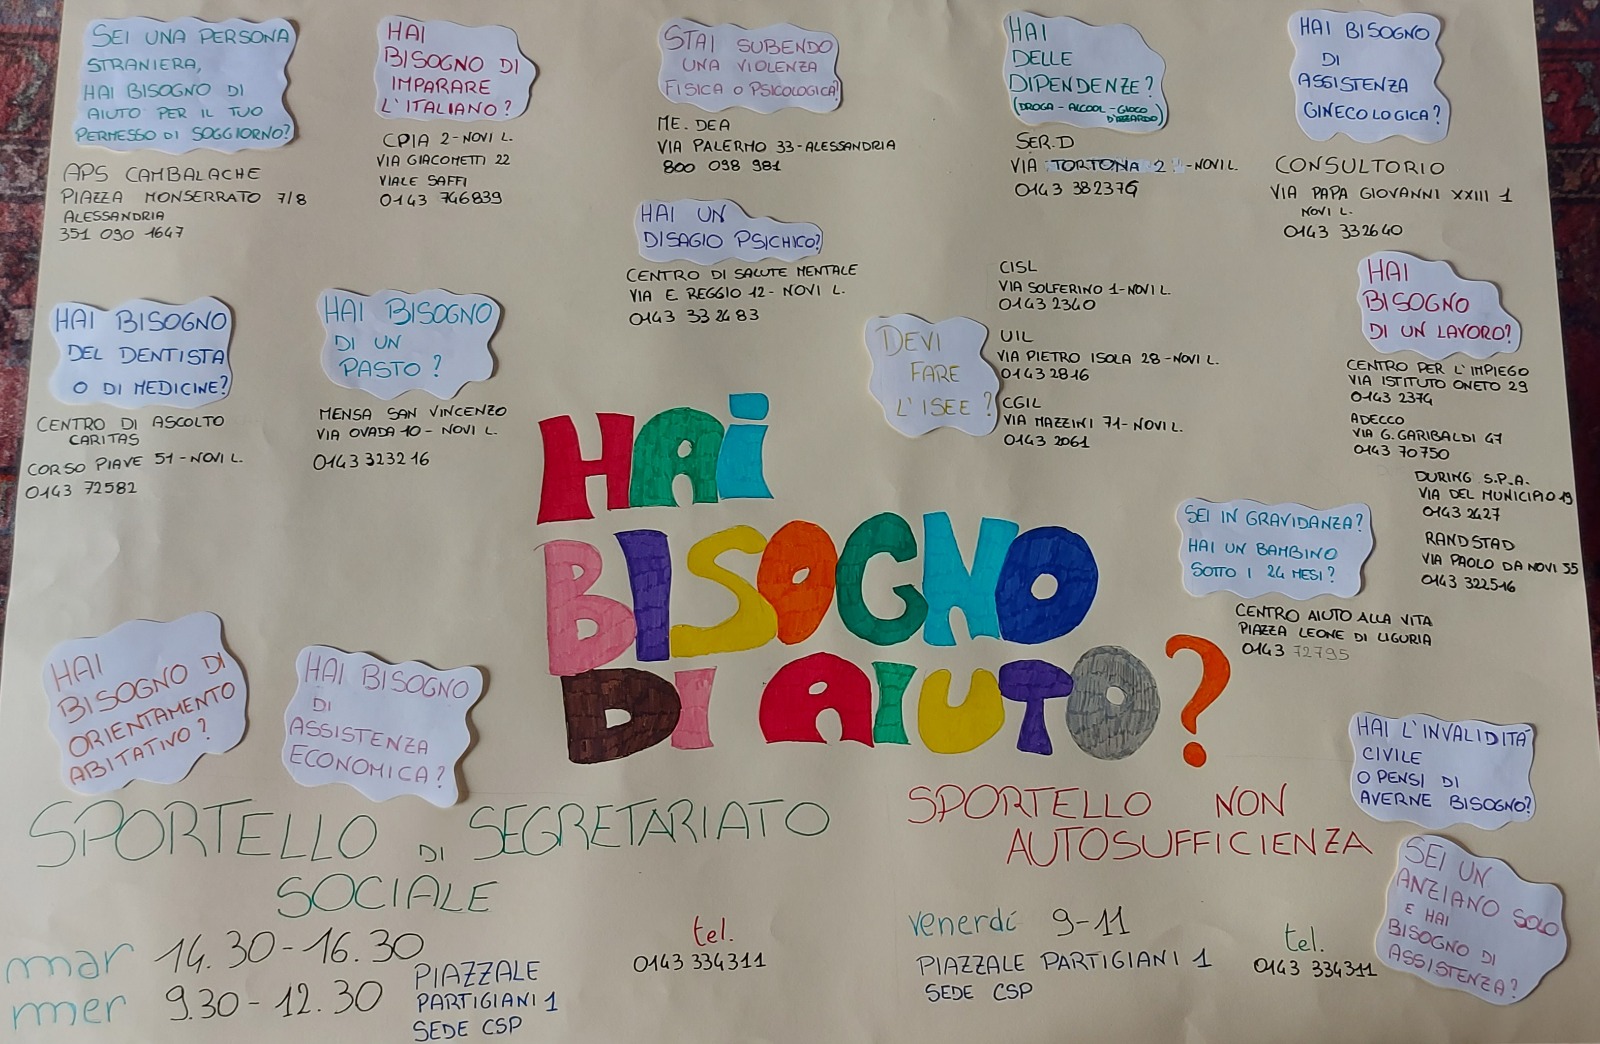 SEI UNA PERSONA
STRANIERA,
HAI BISOGNO DI
AIUTO PER IL TUO
PERMESSO DI SOGGIORNO?
APS CAMBALACHE
PIAZZA MONSERRATO 7/8
ALESSANDRIA
351 090 1647
HAI
BISOGNO DI
IMPARARE
L'ITALIANO?
CPIA 2 - NOVI L.
VIA GIACOMETTI 22
VIALE SAFFI
0143 746839
STAI SUBENDO
UNA VIOLENZA
FISICA O PSICOLOGICA?
ME. DEA
VIA PALERMO 33 - ALESSANDRIA
800 098 981
HAI
DELLE
DIPENDENZE?
(DROGA - ALCOOL - GIOCO
D'AZZARDO)
SER.D
VIA TORTONA 2 - NOVI L.
0143 382379
HAI BISOGNO
DI
ASSISTENZA
GINECOLOGICA?
CONSULTORIO
VIA PAPA GIOVANNI XXIII 1
NOVI L.
0143 332640
HAI UN
DISAGIO PSICHICO?
CENTRO DI SALUTE MENTALE
VIA E. REGGIO 12 - NOVI L.
0143 332483
HAI BISOGNO
DEL DENTISTA
O DI MEDICINE?
CENTRO DI ASCOLTO
CARITAS
CORSO PIAVE 51 - NOVI L.
0143 72582
HAI BISOGNO
DI UN
PASTO?
MENSA SAN VINCENZO
VIA OVADA 10 - NOVI L.
0143 323216
DEVI
FARE
L'ISEE?
CISL
VIA SOLFERINO 1 - NOVI L.
0143 2340
UIL
VIA PIETRO ISOLA 28 - NOVI L.
0143 2816
CGIL
VIA MAZZINI 71 - NOVI L.
0143 2061
HAI
BISOGNO
DI UN LAVORO?
CENTRO PER L'IMPIEGO
VIA ISTITUTO ONETO 29
0143 2374
ADECCO
VIA G. GARIBALDI 47
0143 70750
DURING S.P.A.
VIA DEL MUNICIPIO 19
0143 2427
RANDSTAD
VIA PAOLO DA NOVI 35
0143 322516
HAI
BISOGNO
DI AIUTO?
SEI IN GRAVIDANZA?
HAI UN BAMBINO
SOTTO I 24 MESI?
CENTRO AIUTO ALLA VITA
PIAZZA LEONE DI LIGURIA
0143 72795
HAI
BISOGNO DI
ORIENTAMENTO
ABITATIVO?
HAI BISOGNO
DI
ASSISTENZA
ECONOMICA?
SPORTELLO DI SEGRETARIATO
SOCIALE
mar 14.30 - 16.30
mer 9.30 - 12.30
PIAZZALE
PARTIGIANI 1
SEDE CSP
tel.
0143 334311
HAI L'INVALIDITÀ
CIVILE
O PENSI DI
AVERNE BISOGNO?
SEI UN
ANZIANO SOLO
E HAI
BISOGNO DI
ASSISTENZA?
SPORTELLO NON
AUTOSUFFICIENZA
venerdí 9-11
PIAZZALE PARTIGIANI 1
SEDE CSP
tel.
0143 334311